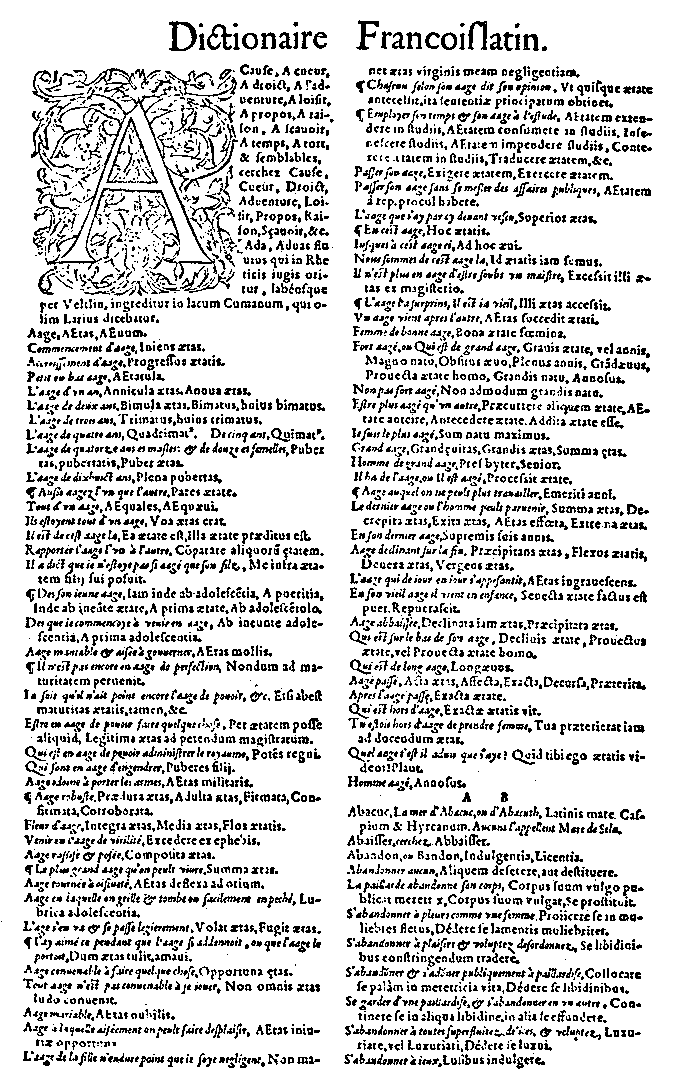 Dictionaire Francoislatin.
Cause, A cueur,
A droict, A l'ad-
uenture, A loisir,
A propos, A rai-
son, A scauoir,
A temps, A tort,
& semblables,
cerchez Cause,
Cueur, Droict,
Aduenture, Loi-
sir, Propos, Rai-
son, Sçauoir, &c.
Ada, Aduas flu
uius qui in Rhe
ticis iugis ori-
tur, labénsque
per Veltlin, ingreditur in lacum Cumanum, qui o-
lim Larius dicebatur.
Aage, AEtas, AEuum.
Commencement d'aage, Iniens ætas.
Accroissement d'aage, Progressus ætatis.
Petit ou bas aage, AEtatula.
L'aage d'vn an, Annicula ætas. Annua ætas.
L'aage de deux ans, Bimula ætas, Bimatus, huius bimatus.
L'aage de trois ans, Trimatus, huius trimatus.
L'aage de quatre ans, Quadrimatꝰ. De cinq ans, Quimatꝰ.
L'aage de quatorze ans es masles: & de douze es femelles, Puber
tas, pubertatis, Puber ætas.
L'aage de dixhuict ans, Plena pubertas.
¶ Aussi aagez l'vn que l'autre, Pares ætate.
Tout d'vn aage, AEquales, AEquæui.
Ils estoyent tout d'vn aage, Vna ætas erat.
Il est de cest aage la, Ea ætate est, Illa ætate præditus est.
Rapporter l'aage l'vn à l'autre, Cōparare aliquorū ętatem.
Il a dict que ie n'estoye pas si aagé que son filz, Me infra æta-
tem filij sui posuit.
¶ Des son ieune aage, Iam inde ab adolescētia, A pueritia,
Inde ab ineūte ætate, A prima ætate, Ab adolescētulo.
Des que ie commençoye à venir en aage, Ab ineunte adole-
scentia, A prima adolescentia.
Aage muable & aisee à gouuerner, AEtas mollis.
¶ Il n'est pas encore en aage de perfection, Nondum ad ma-
turitatem peruenit.
Ia soit qu'il n'ait point encore l'aage de pouoir, &c. Etsi abest
maturitas ætatis, tamen, &c.
Estre en aage de pouoir faire quelque chose, Per ætatem posse
aliquid, Legitima ætas ad petendum magistratum.
Qui est en aage de pouoir administrer le royaume, Potēs regni.
Qui sont en aage d'engendrer, Puberes filij.
Aage idoine à porter les armes, AEtas militaris.
¶ Aage robuste, Prædura ætas, Adulta ætas, Firmata, Con-
firmata, Corroborata.
Fleur d'aage, Integra ætas, Media ætas, Flos ætatis.
Venir en l'aage de virilité, Excedere ex ephebis.
Aage rassise & posée, Composita ætas.
¶ La plus grand aage qu'on peult viure, Summa ætas.
Aage tournée à oisiueté, AEtas deflexa ad otium.
Aage en laquelle on grille & tombe on facilement en peché, Lu-
brica adolescentia.
L'aage s'en va & se passe legierement, Volat ætas, Fugit ætas.
¶ I'ay aimé ce pendant que l'aage si addonnoit, ou que l'aage le
portoit, Dum ætas tulit, amaui.
Aage conuenable à faire quelque chose, Opportuna ętas.
Tout aage n'est pas conuenable à se iouer, Non omnis ætas
ludo conuenit.
Aage mariable, AEtas nubilis.
Aage à laquelle aiséement on peult faire desplaisir, AEtas iniu-
riæ opportuna
L'aage de la fille n'endure point que ie soye negligent, Non ma-
net ætas virginis meam negligentiam.
¶ Chascun selon son aage dit son opinion, Vt quisque ætate
antecellit, ita sententiæ principatum obtinet.
¶ Employer son temps & son aage à l'estude, AEtatem exten-
dere in studiis, AEtatem consumere in studiis, Inse-
nescere studiis, AEtatem impendere studiis, Conte-
rere ætatem in studiis, Traducere ætatem, &c.
Passer son aage, Exigere ætatem, Exercere ætatem.
Passer son aage sans se mesler des affaires publiques, AEtatem
à rep. procul habere.
L'aage que i'ay par cy deuant vescu, Superior ætas.
¶ En cest aage, Hoc ætatis.
Iusques à cest aage ci, Ad hoc æui.
Nous sommes de cest aage la, Id ætatis iam sumus.
Il n'est plus en aage d'estre soubs vn maistre, Excessit illi æ-
tas ex magisterio.
¶ L'aage l'a surprins, il est ia vieil, Illi ætas accessit.
Vn aage vient apres l'autre, AEtas succedit ætati.
Femme de bonne aage, Bona ætate fœmina.
Fort aagé, ou Qui est de grand aage, Grauis ætate, vel annis,
Magno natu, Obsitus æuo, Plenus annis, Grādæuus,
Prouecta ætate homo, Grandis natu, Annosus.
Non pas fort aagé, Non admodum grandis natu.
Estre plus aagé qu'vn autre, Præcurrere aliquem ætate, AE-
tate anteire, Antecedere ætate. Addita ætate esse.
Ie suis le plus aagé, Sum natu maximus.
Grand aage, Grandęuitas, Grandis ætas, Summa ętas.
Homme de grand aage, Presbyter, Senior.
Il ha de l'aage, ou Il est aagé, Processit ætate.
¶ Aage auquel on ne peult plus trauailler, Emeriti anni.
Le dernier aage ou l'homme peult paruenir, Summa ætas, De-
crepita ætas, Exita ætas, AEtas effœta, Extrema ætas.
En son dernier aage, Supremis suis annis.
Aage declinant sur la fin, Præcipitans ætas, Flexus ætatis,
Deuexa ætas, Vergens ætas.
L'aage qui de iour en iour s'appesantit, AEtas ingrauescens.
En son vieil aage il vient en enfance, Senecta ætate factus est
puer. Repuerascit.
Aage abbaissée, Declinata iam ætas, Præcipitata ætas.
Qui est sur le bas de son aage, Decliuis ætate, Prouectus
ætate, vel Prouecta ætate homo.
Qui est de long aage, Longæuus.
Aage passé, Acta ætas, Affecta, Exacta, Decursa, Præterita.
Apres l'aage passé, Exacta ætate.
Qui est hors d'aage, Exactæ ætatis vir.
Tu es ia hors d'aage de prendre femme, Tua præteriit iam
ad ducendum ætas.
Quel aage t'est il aduis que i'aye? Quid tibi ego ætatis vi-
deor? Plaut.
Homme aagé, Annosus.
A B
Abacuc, La mer d'Abacuc, ou d'Abacuth, Latinis mare Cas-
pium & Hyrcanum. Aucuns l'appellent Mare de Sala.
Abaisser, cerchez Abbaisser.
Abandon, ou Bandon, Indulgentia, Licentia.
Abandonner aucun, Aliquem deserere, aut destituere.
La paillarde abandonne son corps, Corpus suum vulgo pu-
blicat meretrix, Corpus suum vulgat, Se prostituit.
S'abandonner à pleurs comme vne femme. Proiicere se in mu-
liebres fletus, Dedere se lamentis muliebriter.
S'abandonner à plaisirs & voluptez desordonnez, Se libidini-
bus constringendum tradere.
S'abandōner & s'adōner publiquement à paillardise, Collocare
se palàm in meretricia vita, Dedere se libidinibus.
Se garder d'vne paillardise, & s'abandonner en vn autre, Con-
tinere se in aliqua libidine, in alia se effundere.
S'abandonner à toutes superfluitez, delices, & voluptez, Luxu-
riare, vel Luxuriari, Dedere se luxui.
S'abandonner à ieux, Lusibus indulgere.